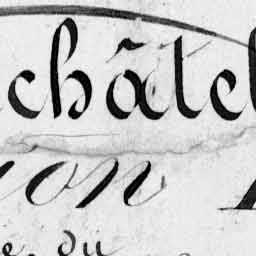 châtel
ion
e, du